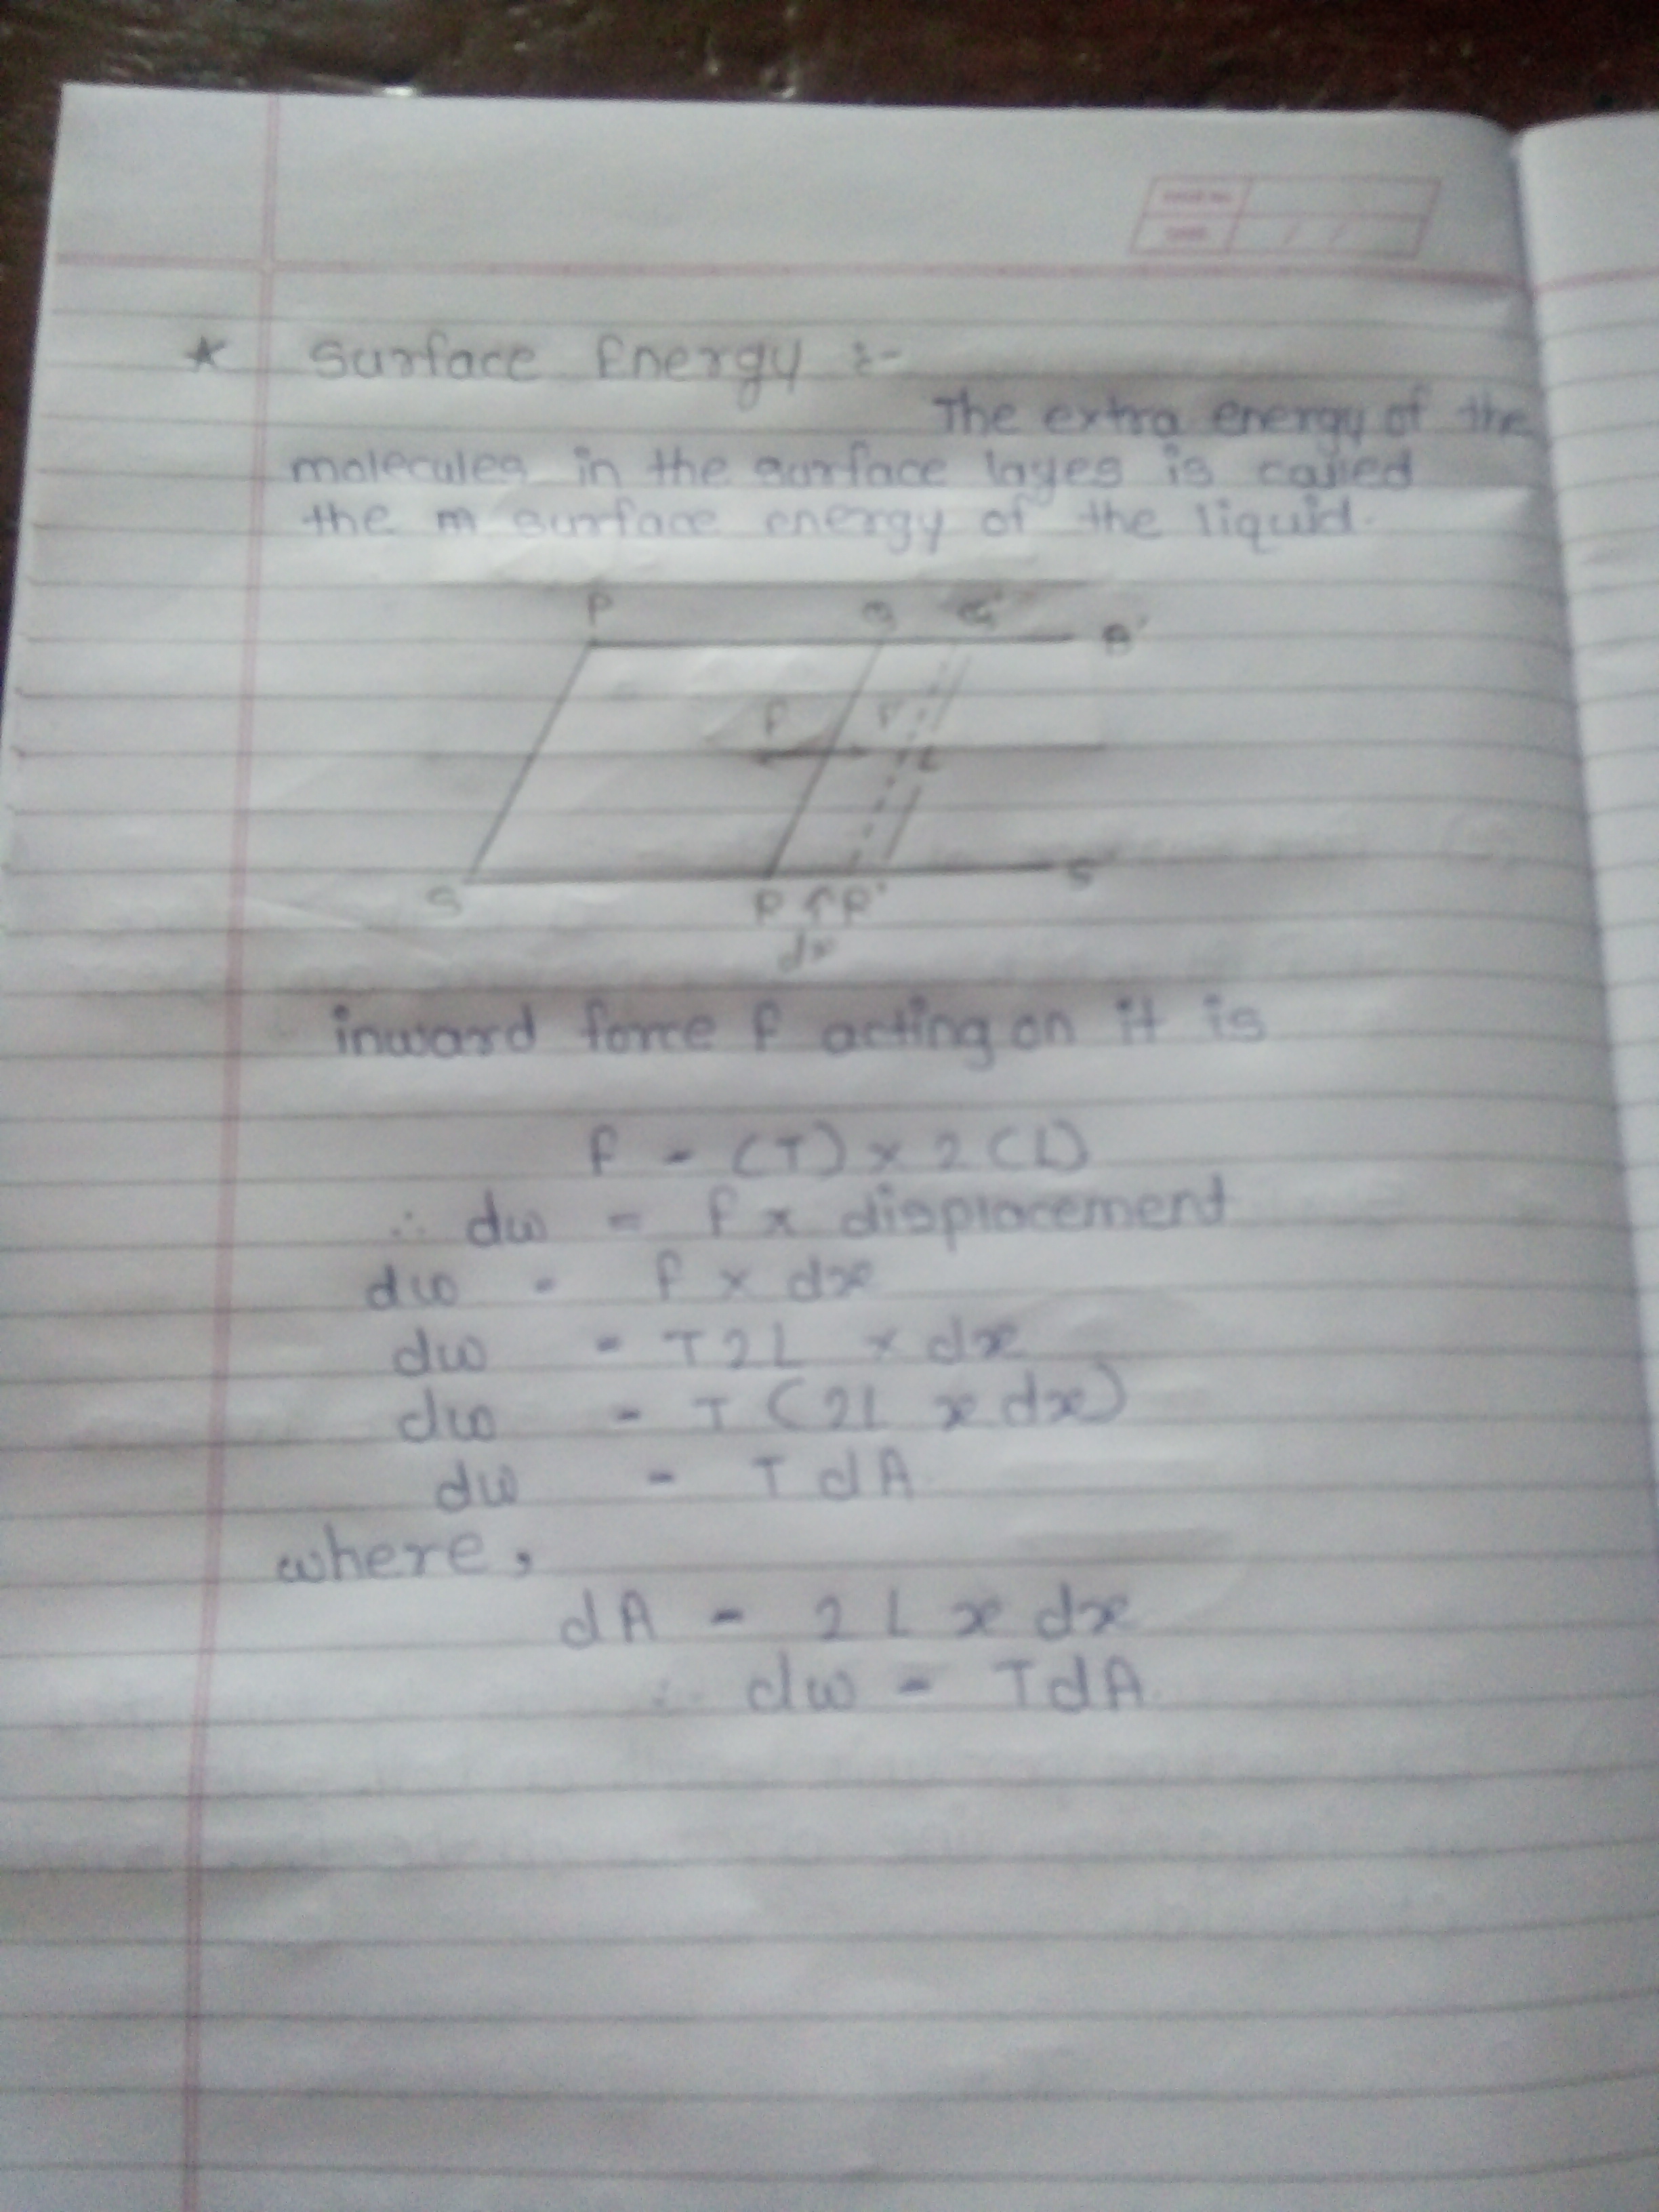 * Surface Energy :-
The extra energy of the
molecules in the surface layes is called
the m surface energy of the liquid.
P Q Q'
F F'
L
S R R' S'
dx
inward force F acting on it is
F = (T) x 2 (L)
∴ dw = F x displacement
dw = F x dx
dw = T 2 L x dx
dw = T (2L x dx)
dw = T dA
where,
dA = 2 L x dx
∴ dw = TdA